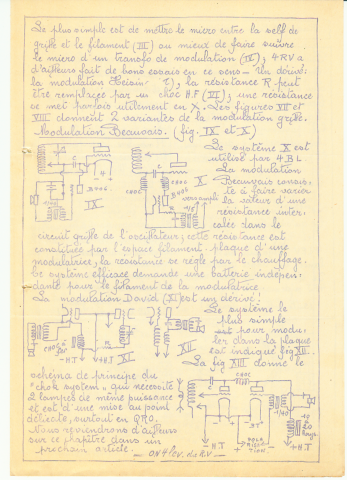 Le plus simple est de mettre le micro entre la self de
grille et le filament (III) ou mieux de faire suivre
le micro d'un transfo de modulation (IV), 4RV a
d'ailleurs fait de bons essais en ce sens - Un dérivé:
la modulation Heising V), la résistance R peut
être remplacée par un choc H.F (VI); une résistance
se met parfois utilement en X. Les figures VII et
VIII donnent 2 variantes de la modulation grille.
Modulation Beauvais. (fig. IX et X)
Le système X est
utilisé par 4.BL
La modulation
Beauvais consis-
te à faire varier
la valeur d'une
résistance inter-
calée dans le
IX
X
B406
B406
vers ampli
circuit grille de l'oscillateur; cette résistance est
constituée par l'espace filament-plaque d'une
modulatrice, la résistance se règle par le chauffage.
Ce système efficace demande une batterie indépen-
dante pour le filament de la modulatrice
La modulation David (XI) est un dérivé!
Le système le
plus simple
pour modu-
ler dans la plaque
est indiqué fig XII.
La fig XIII donne le
-HT
+HT
XI
XII
schéma de principe du
"chok system" qui nécessite
2 lampes de même puissance
et est d'une mise au point
délicate, surtout en QRO.
Nous reviendrons d'ailleurs
sur ce chapitre dans un
prochain article.
-HT
BT
+HT